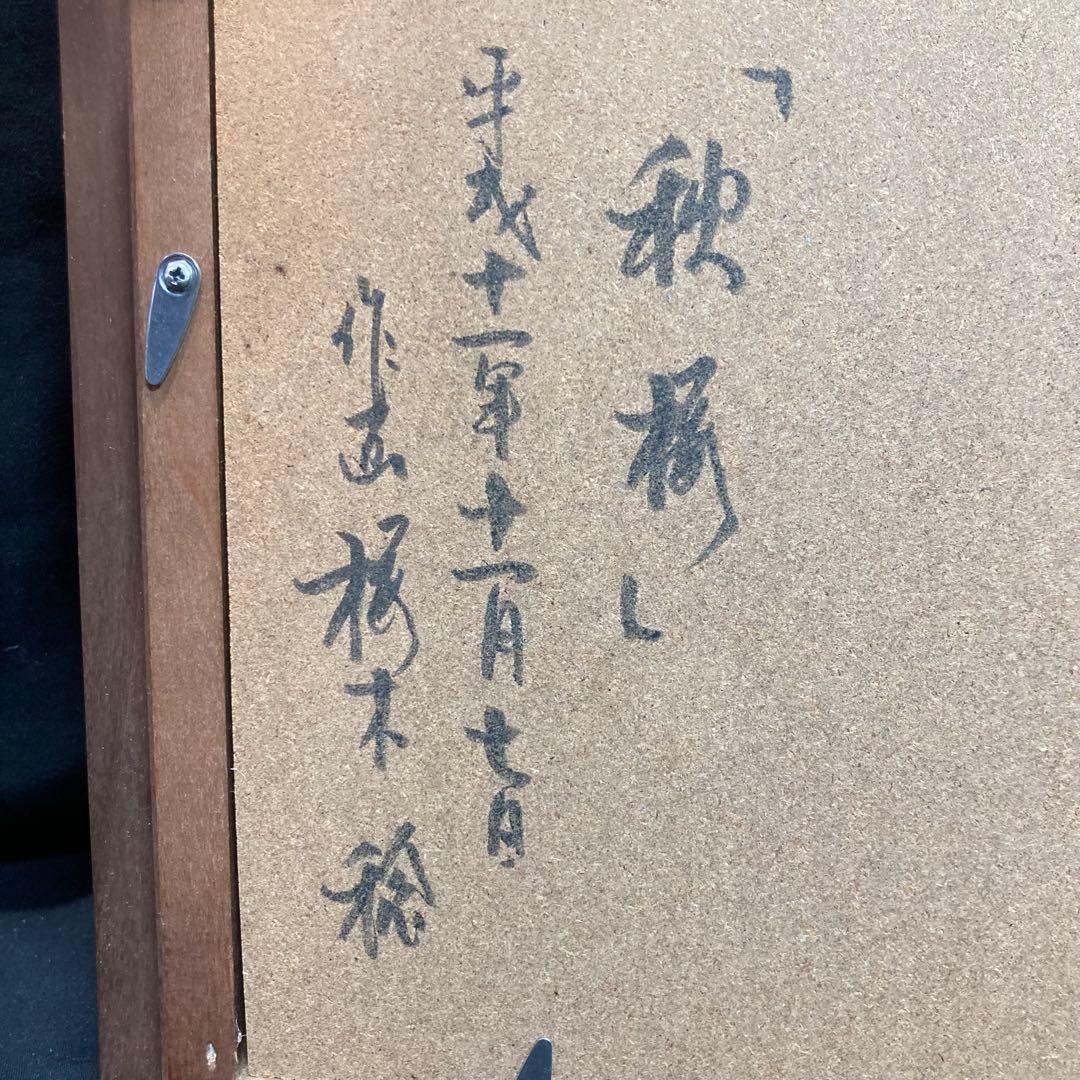 「秋桜」
平成十一年十一月七日
作画 桜木 稔